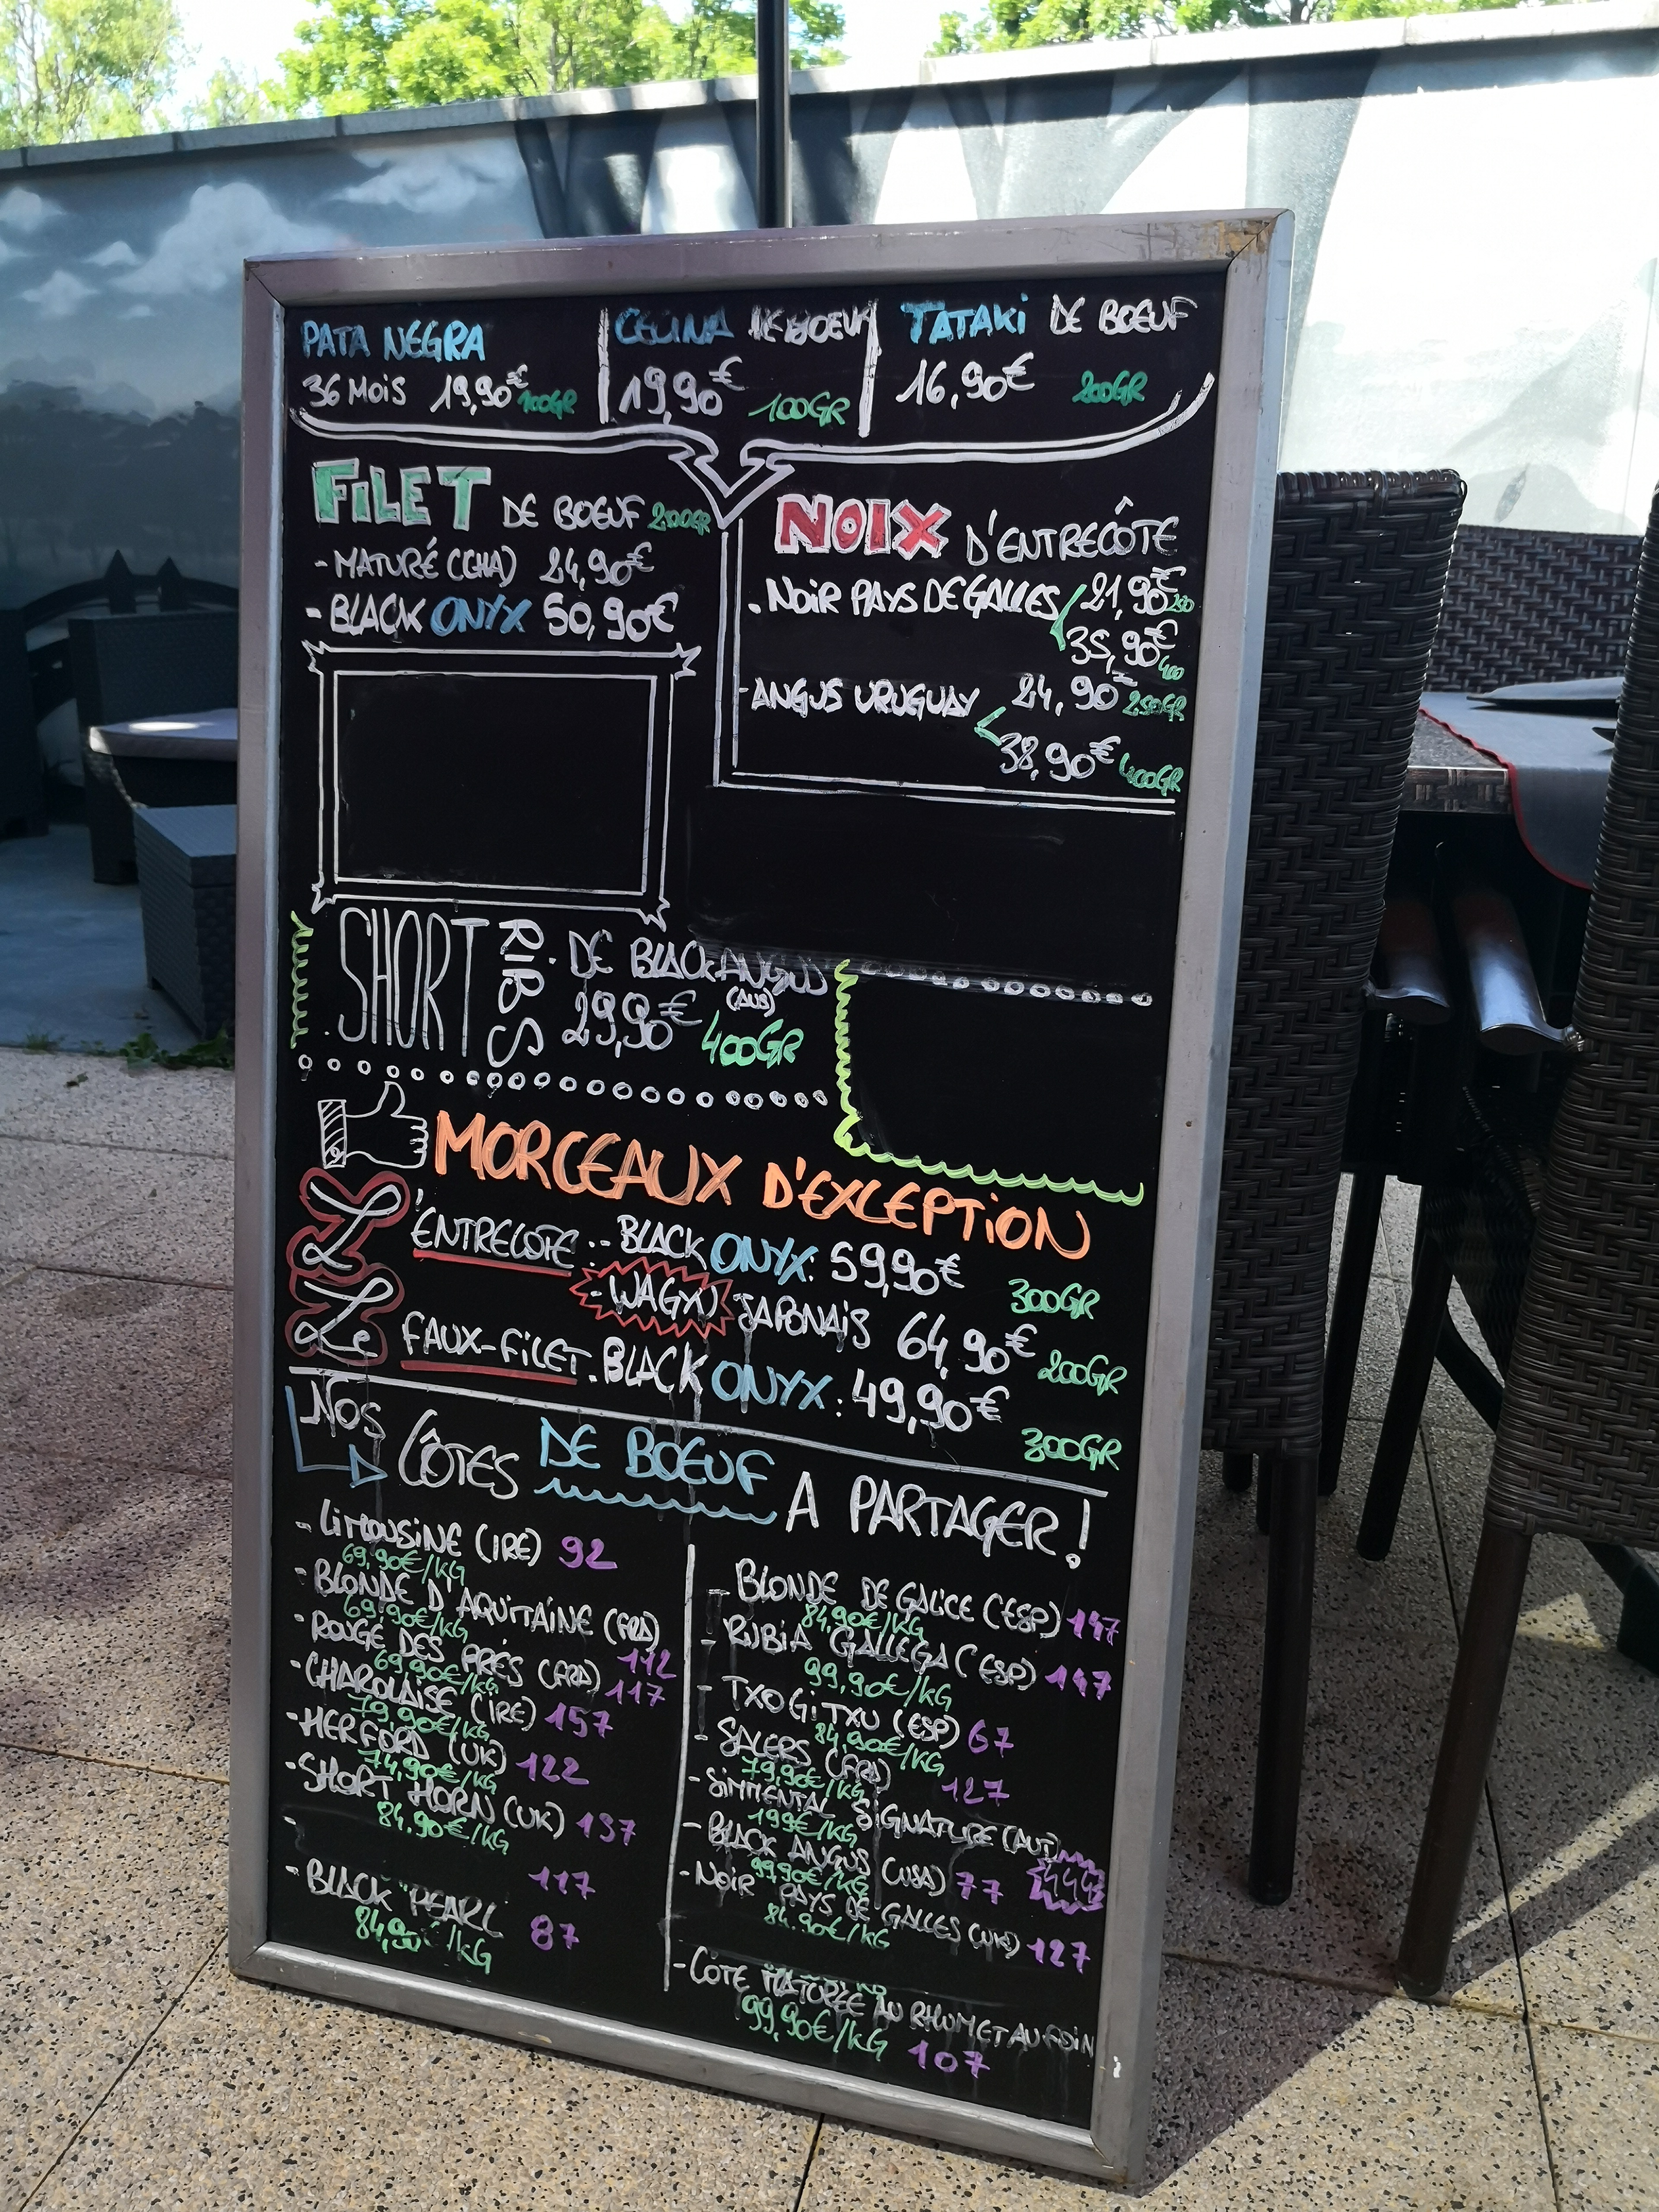 PATA NEGRA
36 MOIS 19,90€ 100GR
CECINA DE BOEUF
19,90€ 100GR
TATAKI DE BOEUF
16,90€ 200GR
FILET DE BOEUF 200GR
- MATURÉ (CHA) 24,90€
- BLACK ONYX 50,90€
NOIX D'ENTRECÔTE
- NOIR PAYS DE GALLES 21,90€ 250
35,90€ 400
- ANGUS URUGUAY 24,90€ 250GR
38,90€ 400GR
SHORT RIBS - DE BLACK ANGUS
(AUS)
29,90€ 400GR
MORCEAUX D'EXCEPTION
L'ENTRECOTE :- BLACK ONYX: 59,90€ 300GR
- WAGYU JAPONAIS 64,90€ 200GR
Le FAUX-FILET . BLACK ONYX: 49,90€ 300GR
NOS CÔTES DE BOEUF A PARTAGER!
- LIMOUSINE (IRE) 92
69,90€/KG
- BLONDE D'AQUITAINE (FRA) 112
69,90€/KG
- ROUGE DES PRÉS (FRA) 117
69,90€/KG
- CHAROLAISE (IRE) 157
79,90€/KG
- HERFORD (UK) 122
74,90€/KG
- SHORT HORN (UK) 137
84,90€/KG
-
117
- BLACK PEARL 87
84,90€/KG
- BLONDE DE GALICE (ESP) 147
84,90€/KG
- RUBIA GALLEGA (ESP) 147
99,90€/KG
- TXOGITXU (ESP) 67
84,90€/KG
- SALERS (FRA) 127
79,90€/KG
- SIMMENTAL SIGNATURE (AUT) 444
199€/KG
- BLACK ANGUS (USA) 77
99,90€/KG
- NOIR PAYS DE GALLES (UK) 127
84,90€/KG
- CÔTE MATURÉE AU RHUM ET AU FOIN
99,90€/KG 107